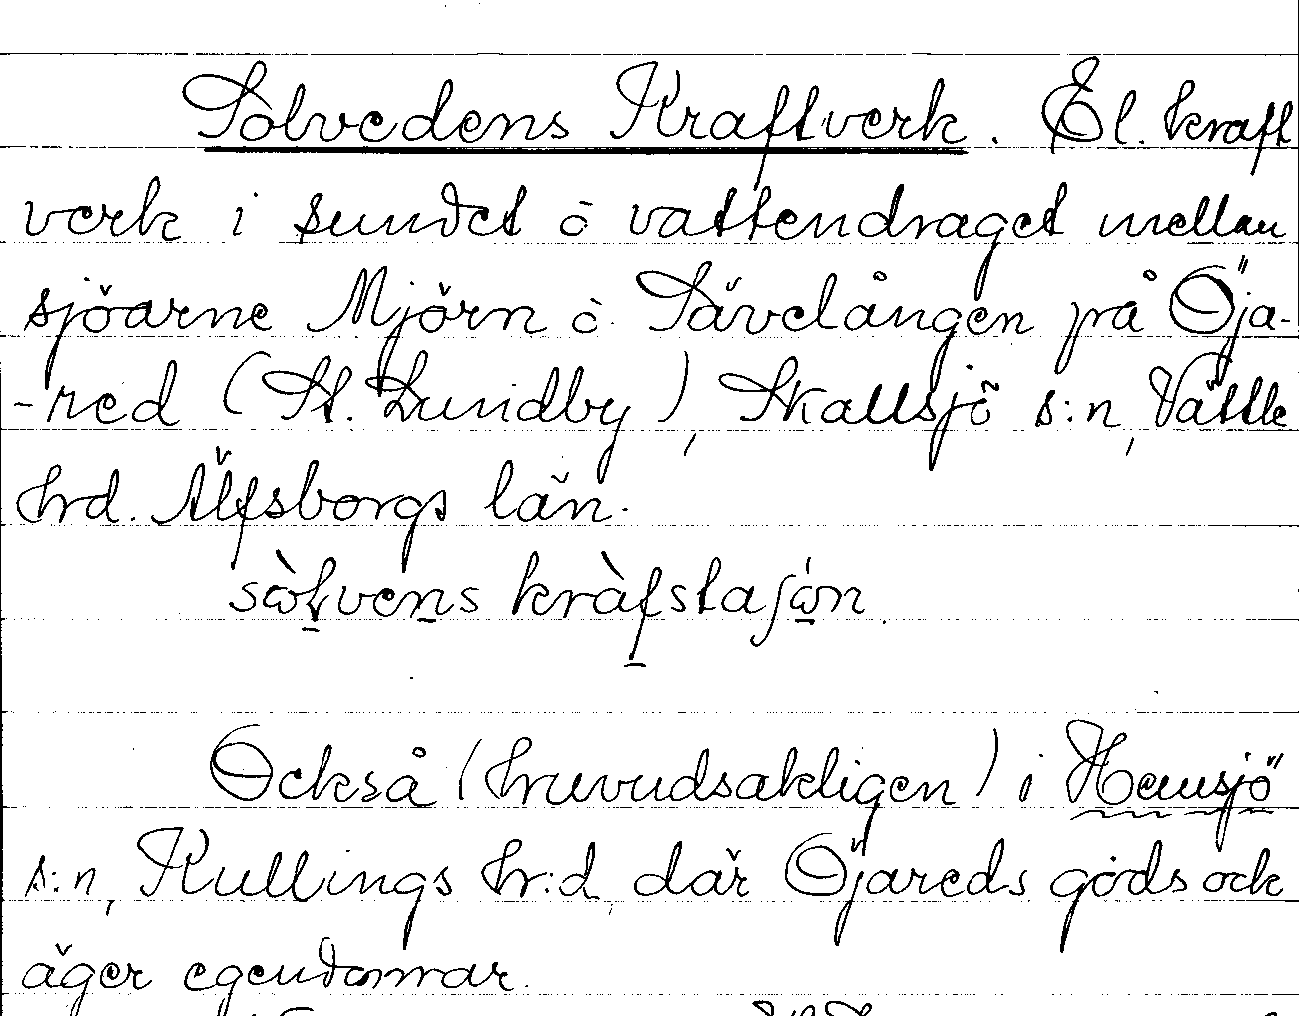 Solvedens Kraftverk. El. kraft
verk i sundet o vattendraget mellan
sjöarne Mjörn o. Sävelången på Öja-
-red (St. Lundby), Skallsjö s:n, Vättle
hrd. Älfsborgs län.
kràfstaʃón
Också (huvudsakligen) i Hemsjö
s:n, Kullings hr:d, där Öjareds gods ock
äger egendomar.